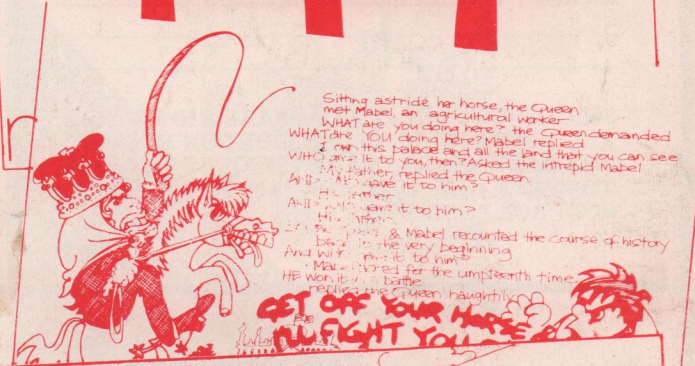 Sitting astride her horse, the Queen
met Mabel, an agricultural worker
WHAT are you doing here? the Queen demanded
WHAT are YOU doing here? Mabel replied
I own this palace and all the land that you can see
WHO gave it to you, then? Asked the intrepid Mabel
My Father, replied the Queen
AND WHO gave it to him?
His father
AND WHO gave it to him?
His father
& Mabel recounted the course of history
back to the very beginning
And who gave it to him?
Mabel asked for the umpteenth time
HE won it in battle
replied the Queen haughtily
GET OFF YOUR HORSE
I'LL FIGHT YOU